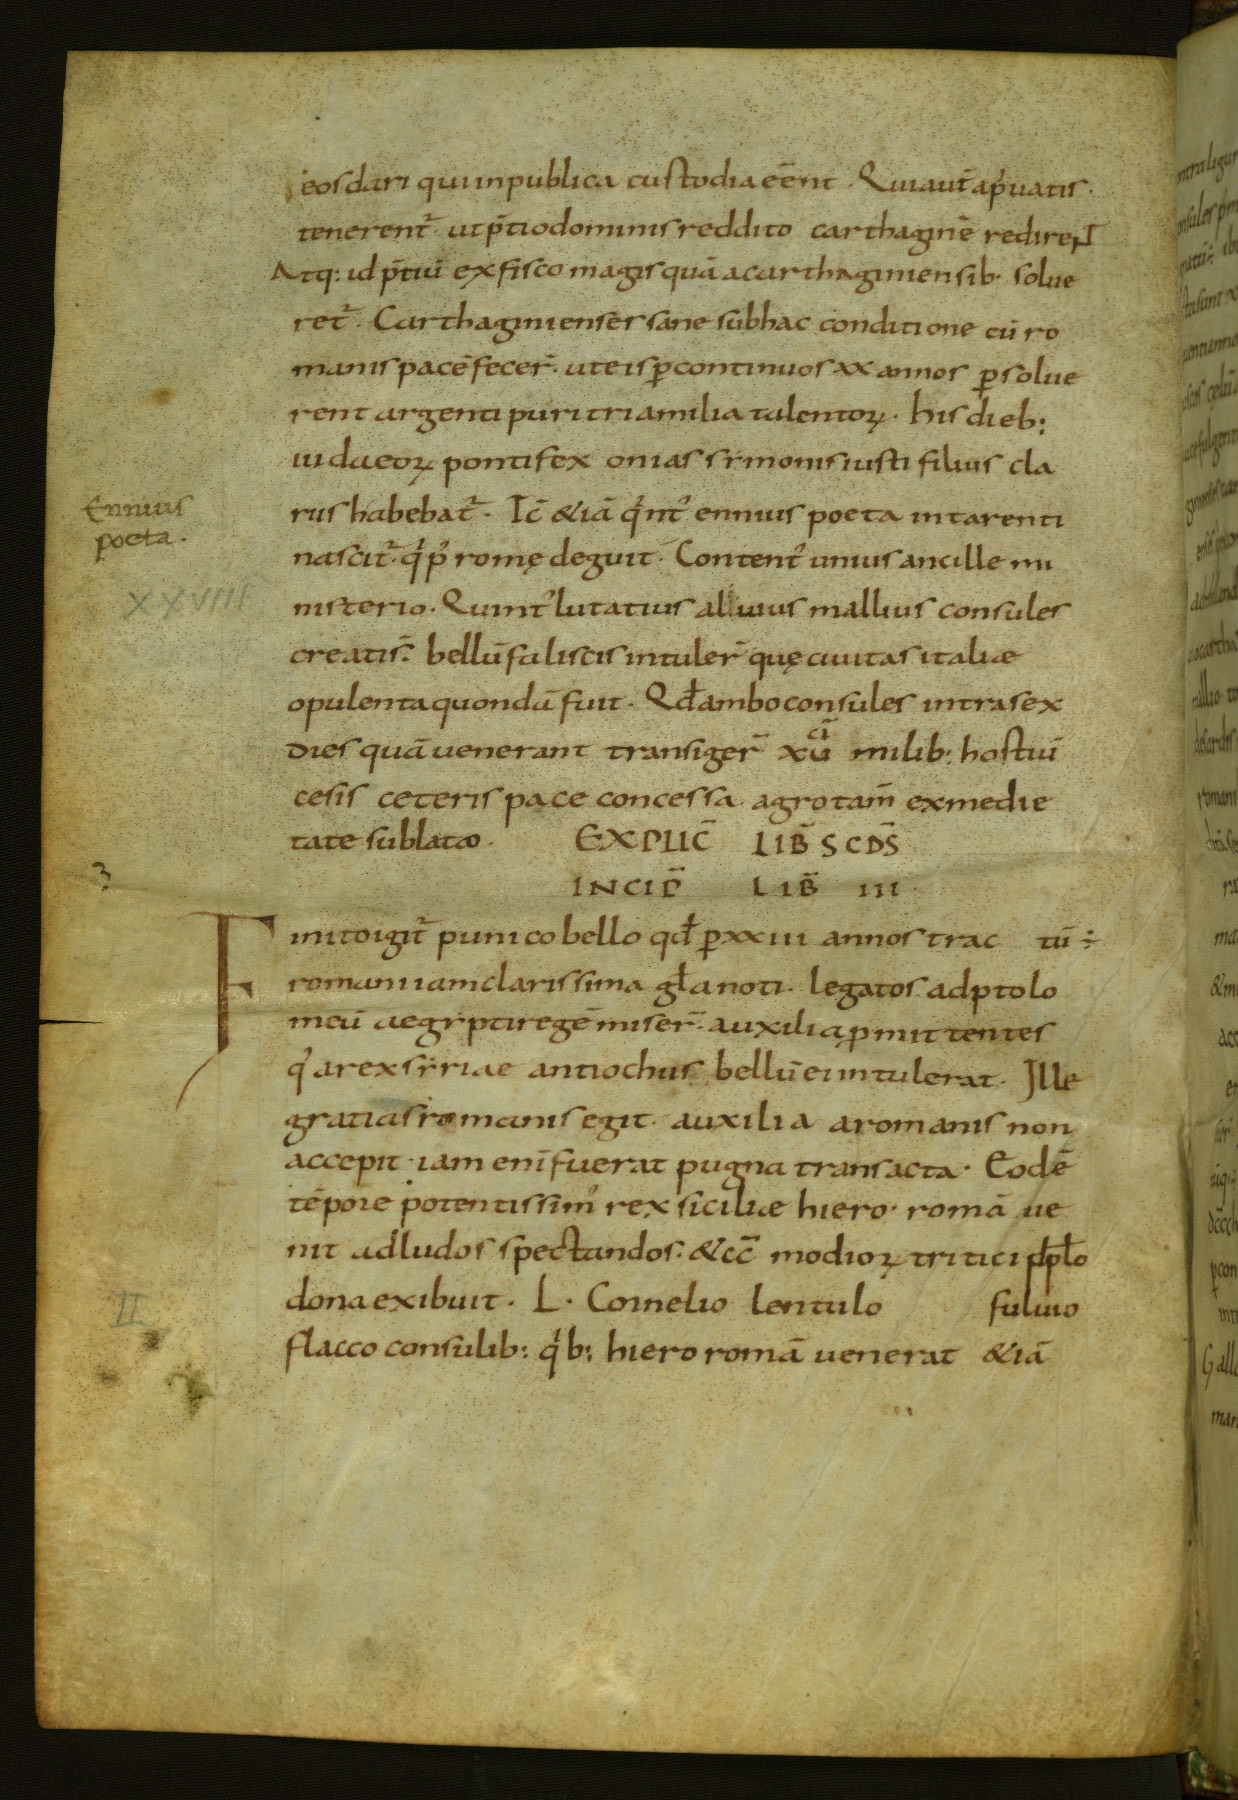 eos dari qui in publica custodia eēnt. Qui aut̄ a p̱uatis.
tenerent᷑. ut p̄tio dominis reddito carthaginē redirent
Atq: id p̄tiū ex fisco magis quā a carthaginiensib· solue
ret᷑. Carthaginienser sane sub hac conditione cū ro
manis pacē fecer̄. ut eis ꝑ continuos xx annos ꝑsolue
rent argenti puri tria milia talentoꝝ. his dieb:
iudaeoꝝ pontifex onias symonis iusti filius cla
rus habebat᷑. Ic̄ &iā q̇nt᾽ ennius poeta in tarenti
Ennius
poeta.
nascit᷑. q̇ p᾽ romę deguit. Content᾽ unius ancille mi
XXVIII
nisterio. Quint᾽ lutatius al uius mallius consules
creatis᷑. bellū faliscis intuler̄ quę ciuitas italiae
opulenta quondā fuit. Qđ ambo consules intra sex
dies quā venerant transiger̄ xu milib: hostiū
cesis ceteris pace concessa agro tam̄ ex medie
tate sublato. EXPLIC̄ LIB̄ SCD̄S
INCIP̄ LIB̄ III
Finito igit᷑ punico bello qđ ꝑ xxiii annos trac tū ÷
romani iam clarissima gła noti. legatos ad ptolo
meū aegypti regē miser̄. auxilia ꝓmittentes
q᾽a rex syriae antiochus bellū ei intulerat. Ille
gratias romanis egit. auxilia a romanis non
accepit. iam eni᷑ fuerat pugna transacta. Eodē
tēpore potentissim᾽ rex siciliae hiero. romā ue
nit ad ludos spectandos. &cc̄ modioꝝ tritici ppło
II
dona exibuit. L. Cornelio lentulo fuluio
flacco consulib: q̇b: hiero romā uenerat &iā